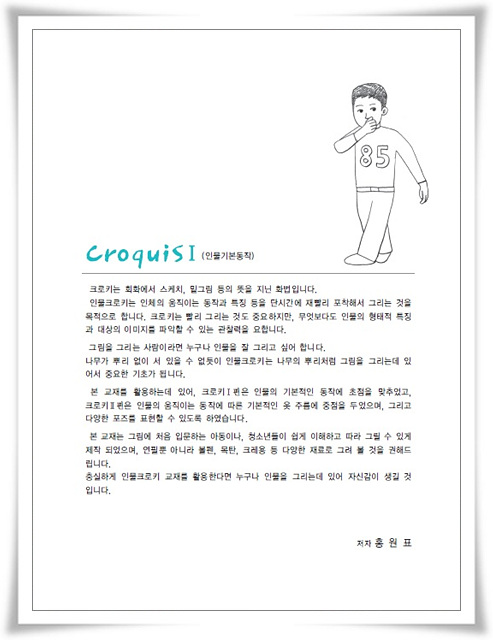 85
Croquis I (인물기본동작)
크로키는 회화에서 스케치, 밑그림 등의 뜻을 지닌 화법입니다.
인물크로키는 인체의 움직이는 동작과 특징 등을 단시간에 재빨리 포착해서 그리는 것을
목적으로 합니다. 크로키는 빨리 그리는 것도 중요하지만, 무엇보다도 인물의 형태적 특징
과 대상의 이미지를 파악할 수 있는 관찰력을 요합니다.
그림을 그리는 사람이라면 누구나 인물을 잘 그리고 싶어 합니다.
나무가 뿌리 없이 서 있을 수 없듯이 인물크로키는 나무의 뿌리처럼 그림을 그리는데 있
어서 중요한 기초가 됩니다.
본 교재를 활용하는데 있어, 크로키Ⅰ편은 인물의 기본적인 동작에 초점을 맞추었고,
크로키Ⅱ편은 인물의 움직이는 동작에 따른 기본적인 옷 주름에 중점을 두었으며, 그리고
다양한 포즈를 표현할 수 있도록 하였습니다.
본 교재는 그림에 처음 입문하는 아동이나, 청소년들이 쉽게 이해하고 따라 그릴 수 있게
제작 되었으며, 연필뿐 아니라 볼펜, 목탄, 크레용 등 다양한 재료로 그려 볼 것을 권해드
립니다.
충실하게 인물크로키 교재를 활용한다면 누구나 인물을 그리는데 있어 자신감이 생길 것
입니다.
저자 홍 원 표